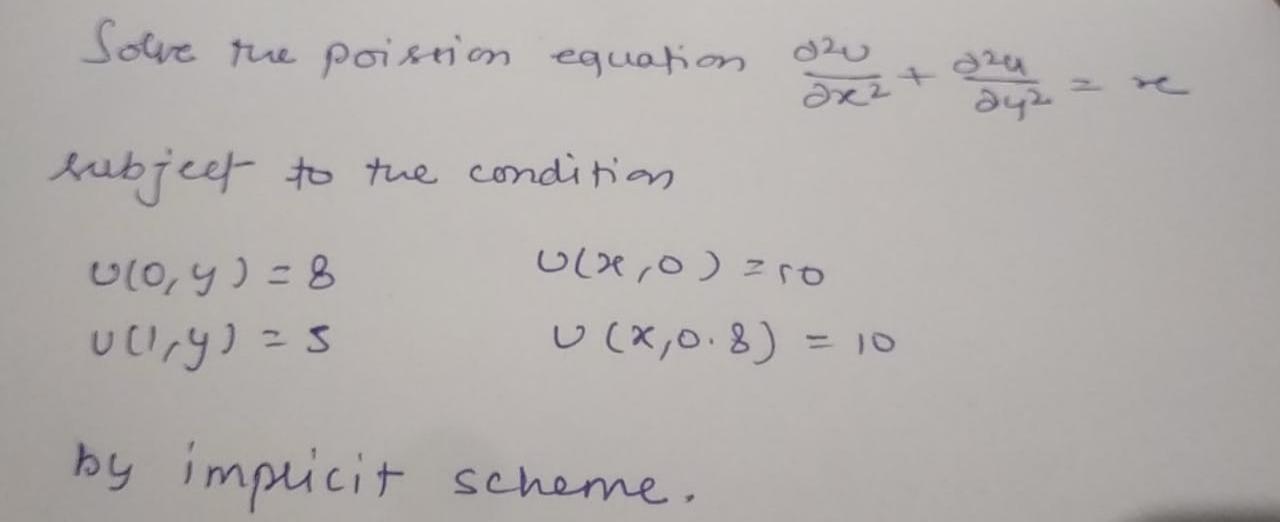 Solve the poission equation ∂²u/∂x² + ∂²u/∂y² = x
subject to the condition
U(0,y) = 8 U(x,0) = 10
U(1,y) = 5 U(x,0.8) = 10
by implicit scheme.